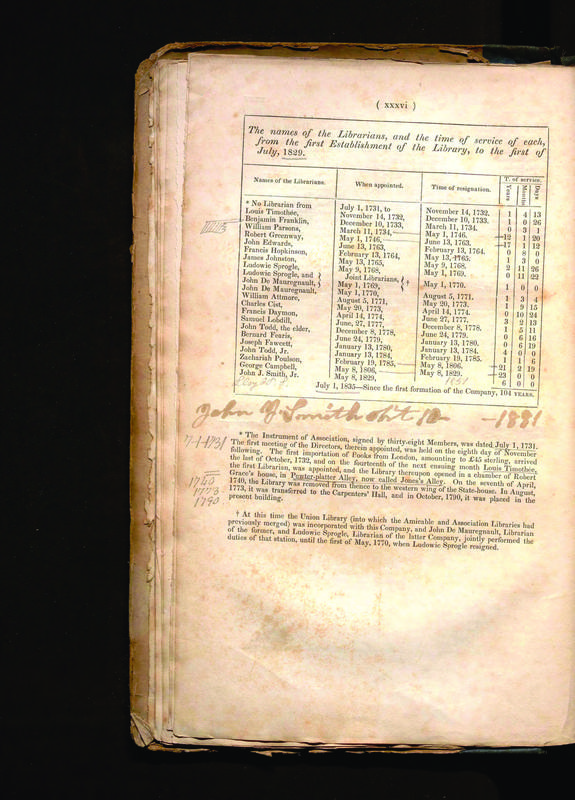 ( xxxvi )
The names of the Librarians, and the time of service of each,
from the first Establishment of the Library, to the first of
July, 1829.
Names of the Librarians. When appointed. Time of resignation. T. of service.
Years Months Days
* No Librarian from July 1, 1731, to November 14, 1732. 1 4 13
Louis Timothée, November 14, 1732, December 10, 1733. 1 0 26
Benjamin Franklin, December 10, 1733, March 11, 1734. 0 3 1
William Parsons, March 11, 1734, May 1, 1746. 12 1 20
Robert Greenway, May 1, 1746, June 13, 1763. 17 1 12
John Edwards, June 13, 1763, February 13, 1764. 0 8 0
Francis Hopkinson, February 13, 1764, May 13, 1765. 1 3 0
James Johnston, May 13, 1765, May 9, 1768. 2 11 26
Ludowic Sprogle, May 9, 1768, May 1, 1769. 0 11 22
Ludowic Sprogle, and Joint Librarians, †
John De Mauregnault, May 1, 1769, May 1, 1770. 1 0 0
John De Mauregnault, May 1, 1770, August 5, 1771. 1 3 4
William Attmore, August 5, 1771, May 20, 1773. 1 9 15
Charles Cist, May 20, 1773, April 14, 1774. 0 10 24
Francis Daymon, April 14, 1774, June 27, 1777. 3 2 13
Samuel Lobdill, June, 27, 1777, December 8, 1778. 1 5 11
John Todd, the elder, December 8, 1778, June 24, 1779. 0 6 16
Bernard Fearis, June 24, 1779, January 13, 1780. 0 6 19
Joseph Fawcett, January 13, 1780, January 13, 1784. 4 0 0
John Todd, Jr. January 13, 1784, February 19, 1785. 1 1 6
Zachariah Poulson, February 19, 1785, May 8, 1806. 21 2 19
George Campbell, May 8, 1806, May 8, 1829. 23 0 0
John J. Smith, Jr. May 8, 1829, 1851 6 0 0
July 1, 1835—Since the first formation of the Company, 104 YEARS.
John J. Smith —1881
7-1-1731
* The Instrument of Association, signed by thirty-eight Members, was dated July 1, 1731.
The first meeting of the Directors, therein appointed, was held on the eighth day of November
following. The first importation of Books from London, amounting to £45 sterling, arrived
the last of October, 1732, and on the fourteenth of the next ensuing month Louis Timothée,
the first Librarian, was appointed, and the Library thereupon opened in a chamber of Robert
Grace's house, in Pewter-platter Alley, now called Jones's Alley. On the seventh of April,
1740, the Library was removed from thence to the western wing of the State-house. In August,
1773, it was transferred to the Carpenters' Hall, and in October, 1790, it was placed in the
present building.
1740
1773
1790
† At this time the Union Library (into which the Amicable and Association Libraries had
previously merged) was incorporated with this Company, and John De Mauregnault, Librarian
of the former, and Ludowic Sprogle, Librarian of the latter Company, jointly performed the
duties of that station, until the first of May, 1770, when Ludowic Sprogle resigned.